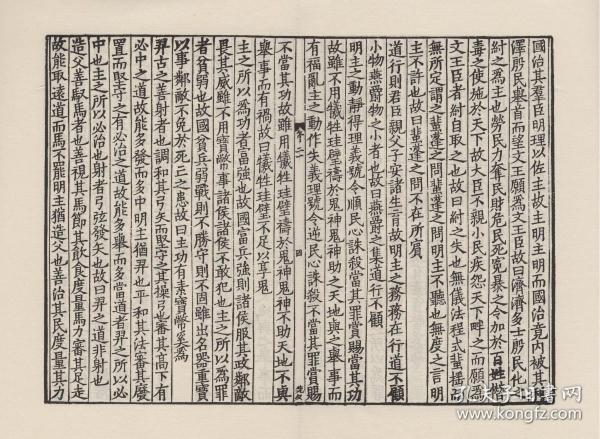 國治其羣臣明理以佐主故主明主明而國治竟内被其利
澤殷民舉首而望文王願為文王臣故曰濟濟多士殷民化之
紂之為主也勞民力奪民財危民死寃暴之令加於百姓憯
毒之使施於天下故大臣不親小民疾怨天下畔之而願為
文王臣者紂自取之也故曰紂之失也無儀法程式蜚搖而
無所定謂之蜚蓬之問蜚蓬之問明主不聽也無度之言明
主不許也故曰蜚蓬之問不在所賔
道行則君臣親父子安諸生育故明主之務務在行道不顧
小物燕爵物之小者也故曰燕爵之集道行不顧
明主之動静得理義號令順民心誅殺當其罪賞賜當其功
故雖不用犧牲珪璧禱於鬼神鬼神助之天地與之舉事而
有福亂主之動作失義理號令逆民心誅殺不當其罪賞賜
不當其功故雖用犧牲珪璧禱於鬼神鬼神不助天地不與
舉事而有禍故曰犧牲珪璧不足以享鬼
主之所以為功者富強也故國富兵強則諸侯服其政鄰敵
畏其威雖不用寶幣事諸侯諸侯不敢犯也主之所以為罪
者貧弱也故國貧兵弱戰則不勝守則不固雖出名器重寶
以事鄰敵不免於死亡之患故曰主功有素寶幣奚為
羿古之善射者也調和其弓矢而堅守之其操弓也審其高下有
必中之道故能多發而多中明主猶羿也平和其法審其廢
置而堅守之有必治之道故能多舉而多當道者羿之所以必
中也主之所以必治也射者弓弦發矢也故曰羿之道非射也
造父善馭馬者也善視其馬節其飲食度量馬力審其足走
故能取遠道而馬不罷明主猶造父也善治其民度量其力
孔夫子旧书网
www.kongfz.com